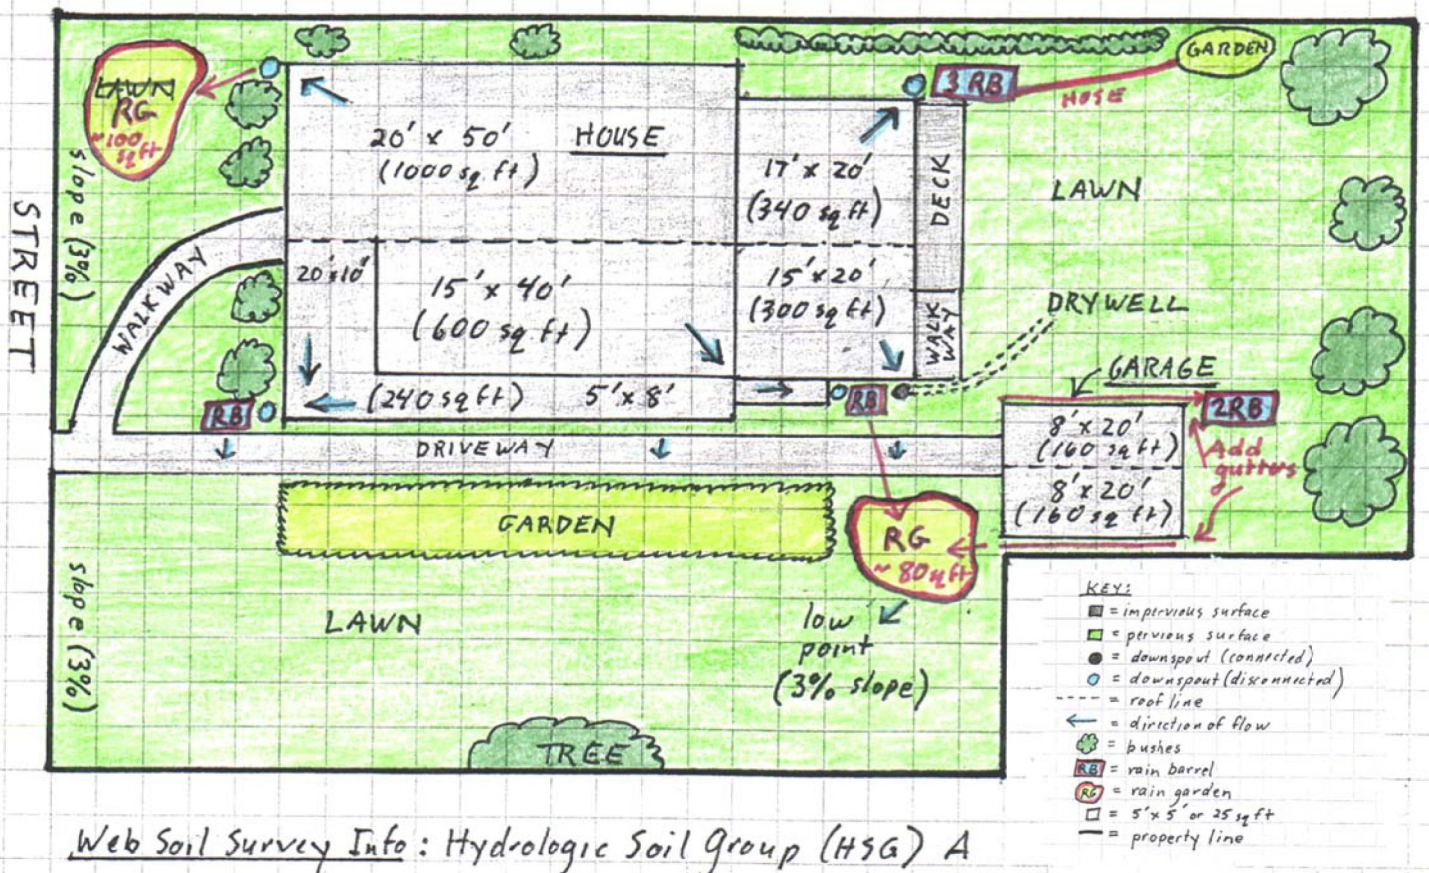 LAWN
RG
~100
sq ft
slope (3%)
STREET
WALKWAY
20' x 50'
(1000 sq ft)
HOUSE
20'x10'
15' x 40'
(600 sq ft)
(240 sq ft)
5' x 8'
17' x 20'
(340 sq ft)
15' x 20'
(300 sq ft)
DECK
WALK
WAY
3 RB
HOSE
GARDEN
LAWN
DRYWELL
GARAGE
RB
RB
2RB
8' x 20'
(160 sq ft)
8' x 20'
(160 sq ft)
Add
gutters
DRIVEWAY
GARDEN
RG
~ 80 sq ft
low
point
(3% slope)
slope (3%)
LAWN
TREE
KEY:
= impervious surface
= pervious surface
= downspout (connected)
= downspout (disconnected)
= roof line
= direction of flow
= bushes
RB = rain barrel
RG = rain garden
= 5' x 5' or 25 sq ft
= property line
Web Soil Survey Info: Hydrologic Soil Group (HSG) A